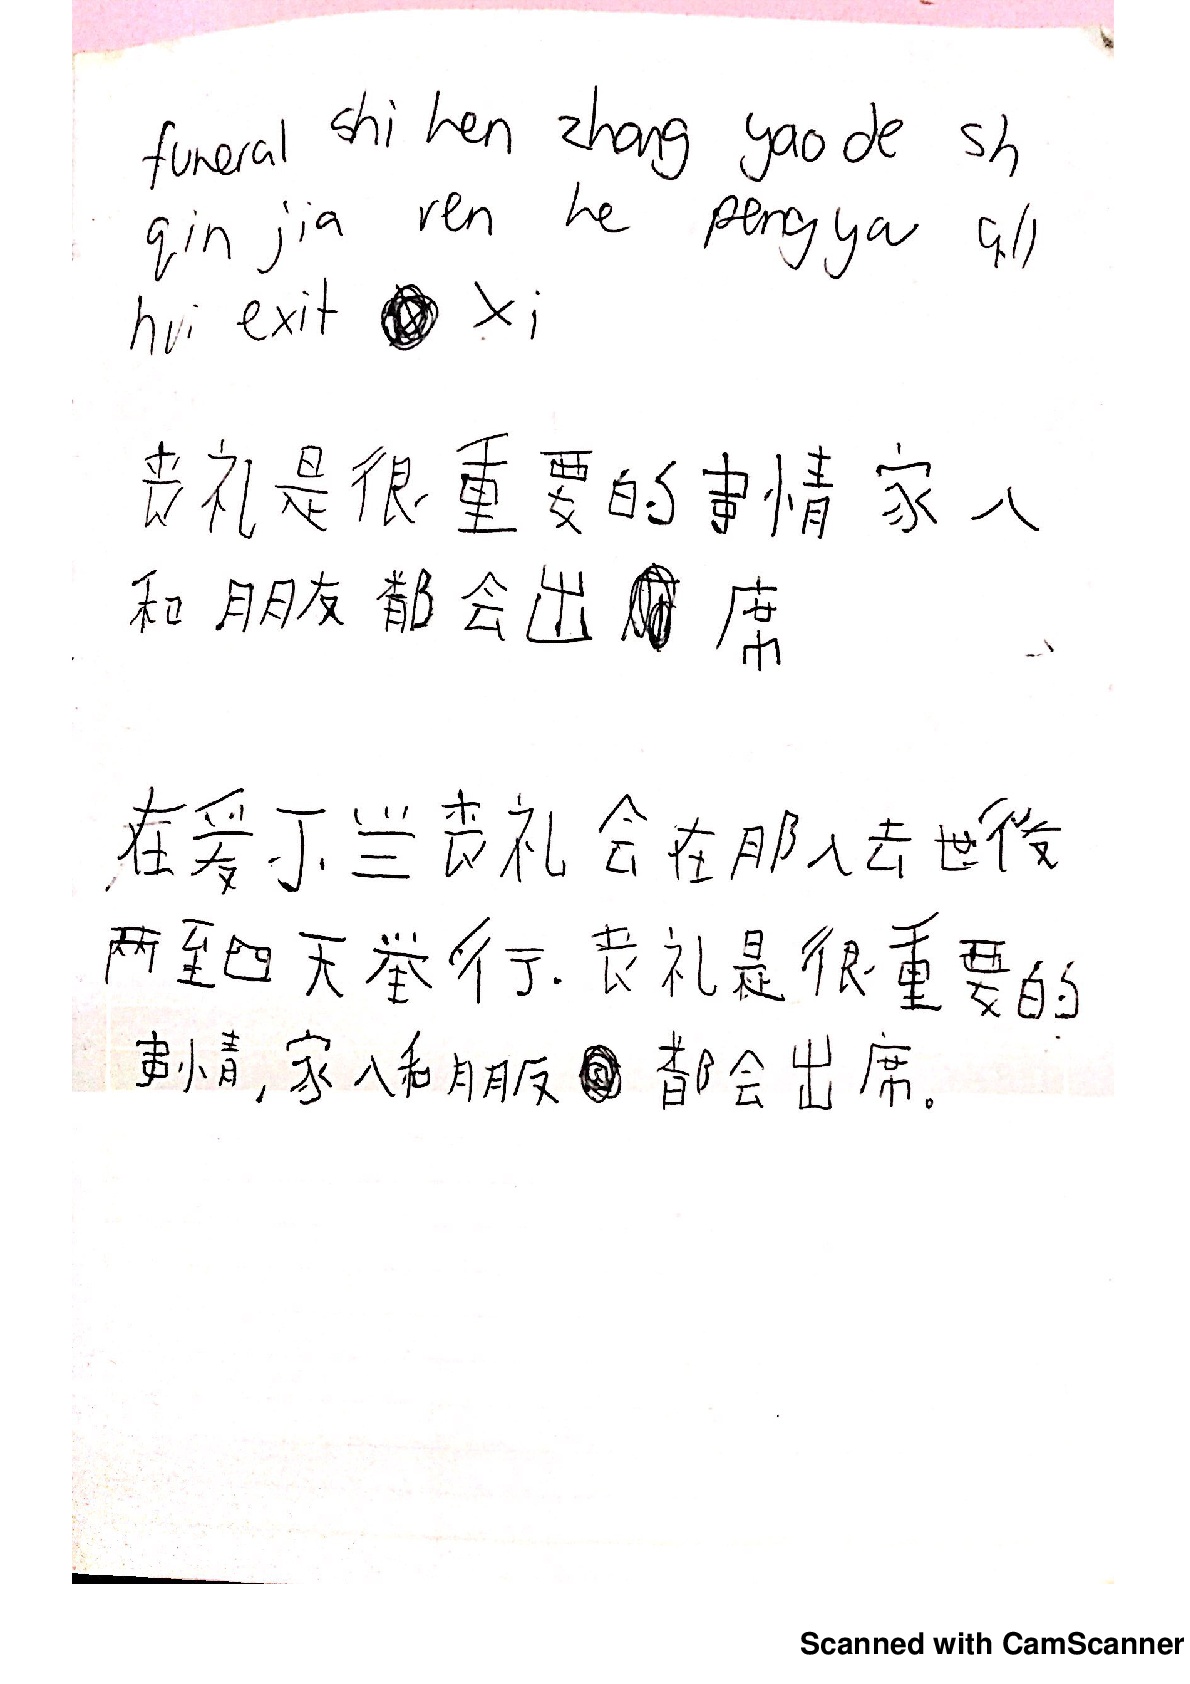 funeral shi hen zhong yao de sh
qin jia ren he pengyou all
hui exit xi
丧礼是很重要的事情家人
和朋友都会出席
在爱尔兰丧礼会在那人去世後
两至四天举行.丧礼是很重要的
事情,家人和朋友都会出席。
Scanned with CamScanner